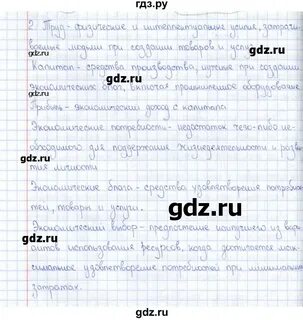 гдз.ру
2. Труд - физические и интеллектуальные усилия, затрачи-
ваемые людьми при создании товаров и услуг
Капитал - средства производства, нужные при создании
экономических благ, включая промышленное оборудование
Прибыль - экономический доход с капитала gdz.ru
Экономические потребности - недостаток чего-либо не-
обходимого для поддержания жизнедеятельности и разви-
тия личности
gdz.ru
Экономические блага - средства удовлетворения потребнос-
тей, товары и услуги. gdz.ru
Экономический выбор - предпочтение наилучшего из вари-
антов использования ресурсов, когда достигается мак-
симальное удовлетворение потребностей при минимальных
затратах.
gdz.ru